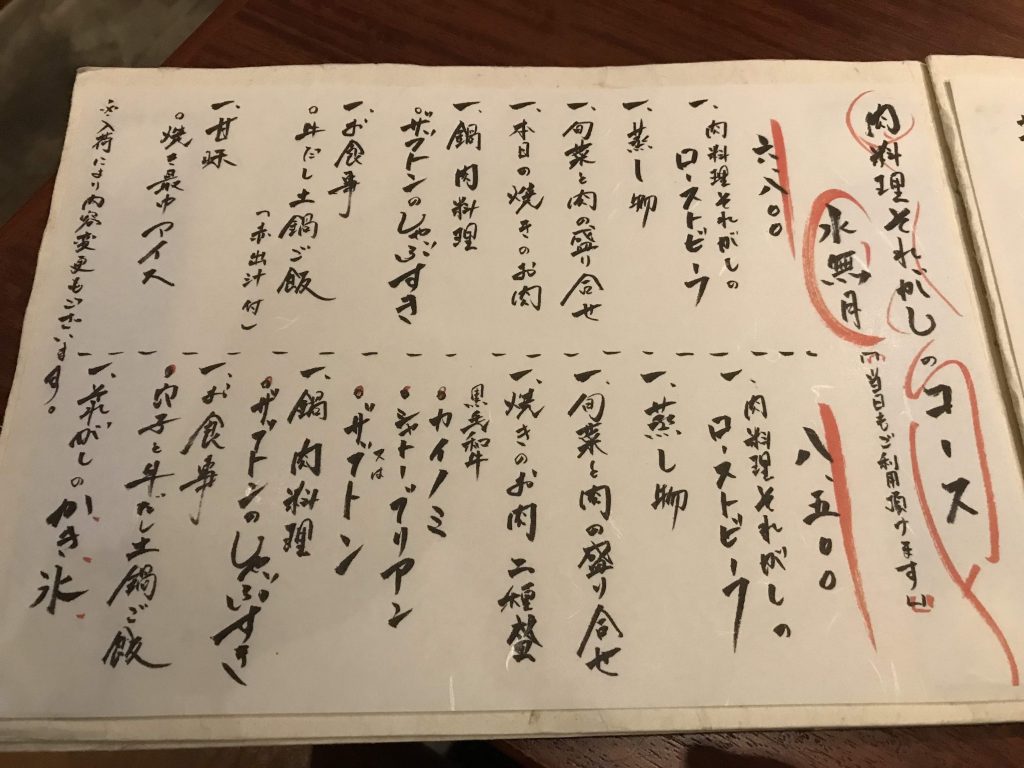 肉料理それがしのコース
水無月
「当日もご利用頂けます」
六、八〇〇
一、肉料理それがしの
ローストビーフ
一、蒸し物
一、旬菜と肉の盛り合せ
一、本日の焼きのお肉
一、鍋肉料理
ザブトンのしゃぶすき
一、お食事
○牛だし土鍋ご飯
(赤出汁付)
一、甘味
○焼き最中アイス
※入荷により内容変更もございます。
八、五〇〇
一、肉料理それがしの
ローストビーフ
一、蒸し物
一、旬菜と肉の盛り合せ
一、焼きのお肉 二種盛
黒毛和牛
○カイノミ
○シャトーブリアン
又は
○ザブトン
一、鍋肉料理
○ザブトンのしゃぶすき
一、お食事
○穴子と牛だし土鍋ご飯
一、それがしのかき氷